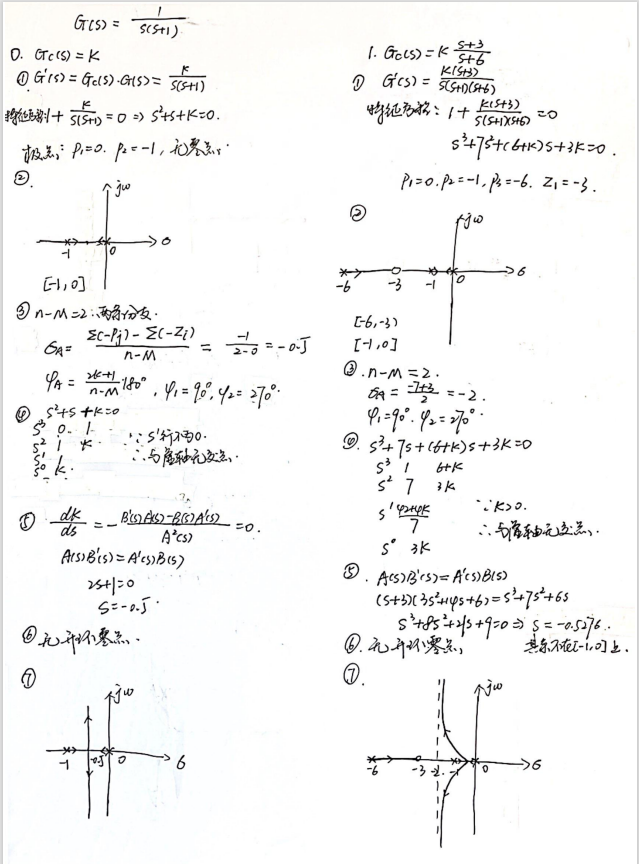 G(s) = 1/s(s+1)
0. Gc(s) = K
① G'(s) = Gc(s)·G(s) = K/s(s+1)
特征方程1 + K/s(s+1) = 0 ⇒ s²+s+K=0.
极点: P₁=0. P₂=-1, 无零点.
②.
jω
-1 0 σ
[-1,0]
③ n-M=2 ∴两条分支.
σA = Σ(-Pj) - Σ(-Zi)/n-M = -1/2-0 = -0.5
φA = 2k+1/n-M·180°, φ₁=90°, φ₂=270°.
④ s²+s+K=0
s³ 0 1
s² 1 K
s¹
s⁰ K
∵ s¹行不为0.
∴与虚轴无交点.
⑤ dK/ds = - B'(s)A(s)-B(s)A'(s)/A²(s) = 0.
A(s)B'(s)=A'(s)B(s)
2s+1=0
s=-0.5
⑥ 无开环零点.
⑦
jω
-1 -0.5 0 σ
1. Gc(s)=K s+3/s+6
① G'(s) = K(s+3)/s(s+1)(s+6)
特征方程: 1 + K(s+3)/s(s+1)(s+6) = 0
s³+7s²+(6+K)s+3K=0.
P₁=0. P₂=-1, P₃=-6. Z₁=-3.
②
jω
-6 -3 -1 0 σ
[-6,-3)
[-1,0]
③. n-M=2.
σA = -7+3/2 = -2.
φ₁=90°. φ₂=270°
④. s³+7s+(6+K)s+3K=0
s³ 1 6+K
s² 7 3K
s¹ 42+4K/7
s⁰ 3K
∵K>0.
∴与虚轴无交点.
⑤. A(s)B'(s)=A'(s)B(s)
(s+3)(3s²+14s+6)=s³+7s²+6s
s³+8s²+21s+9=0 ⇒ s=-0.5276.
其余不在[-1,0]上.
⑥. 无开环零点
⑦.
jω
-6 -3 -2 -1 0 σ